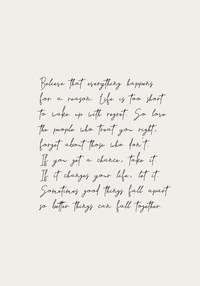 Believe that everything happens
for a reason. Life is too short
to wake up with regret. So love
the people who treat you right,
forget about those who don't.
If you get a chance, take it.
If it changes your life, let it.
Sometimes good things fall apart
so better things can fall together.